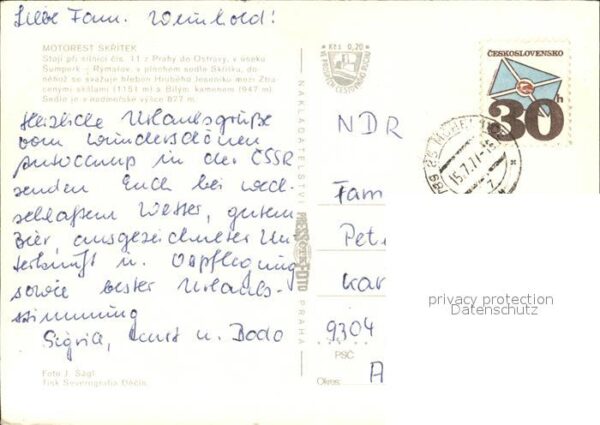 Liebe Fam. Weinhold!
MOTOREST SKŘÍTEK
Stojí při silnici čís. 11 z Prahy do Ostravy, v úseku
Šumperk - Rýmařov v plochém sedle Skřítku, do
něhož se svažuje hřeben Hrubého Jeseníku mezi Ztra-
cenými skálami (1151 m) a Bílým kamenem (947 m)
Sedlo je v nadmořské výšce 877 m.
Herzliche Urlaubsgrüße
vom wunderschönen
Autocamp in der ČSSR
senden Euch bei wech-
selhaftem Wetter, gutem
Bier, ausgezeichneter Un-
terkunft u. Verpflegung
sowie bester Urlaubs-
stimmung
Sigrid, Kurt u. Bodo
Foto J. Ságl
Tisk Severografia Děčín
Kčs 0,20
NAKLADATELSTVÍ
PRESSFOTO
PRAHA
ČESKOSLOVENSKO
30 h
15.7.77-15
NDR
Fam
Pet
Kar
9304
PSČ
A
Okres:
privacy protection
Datenschutz